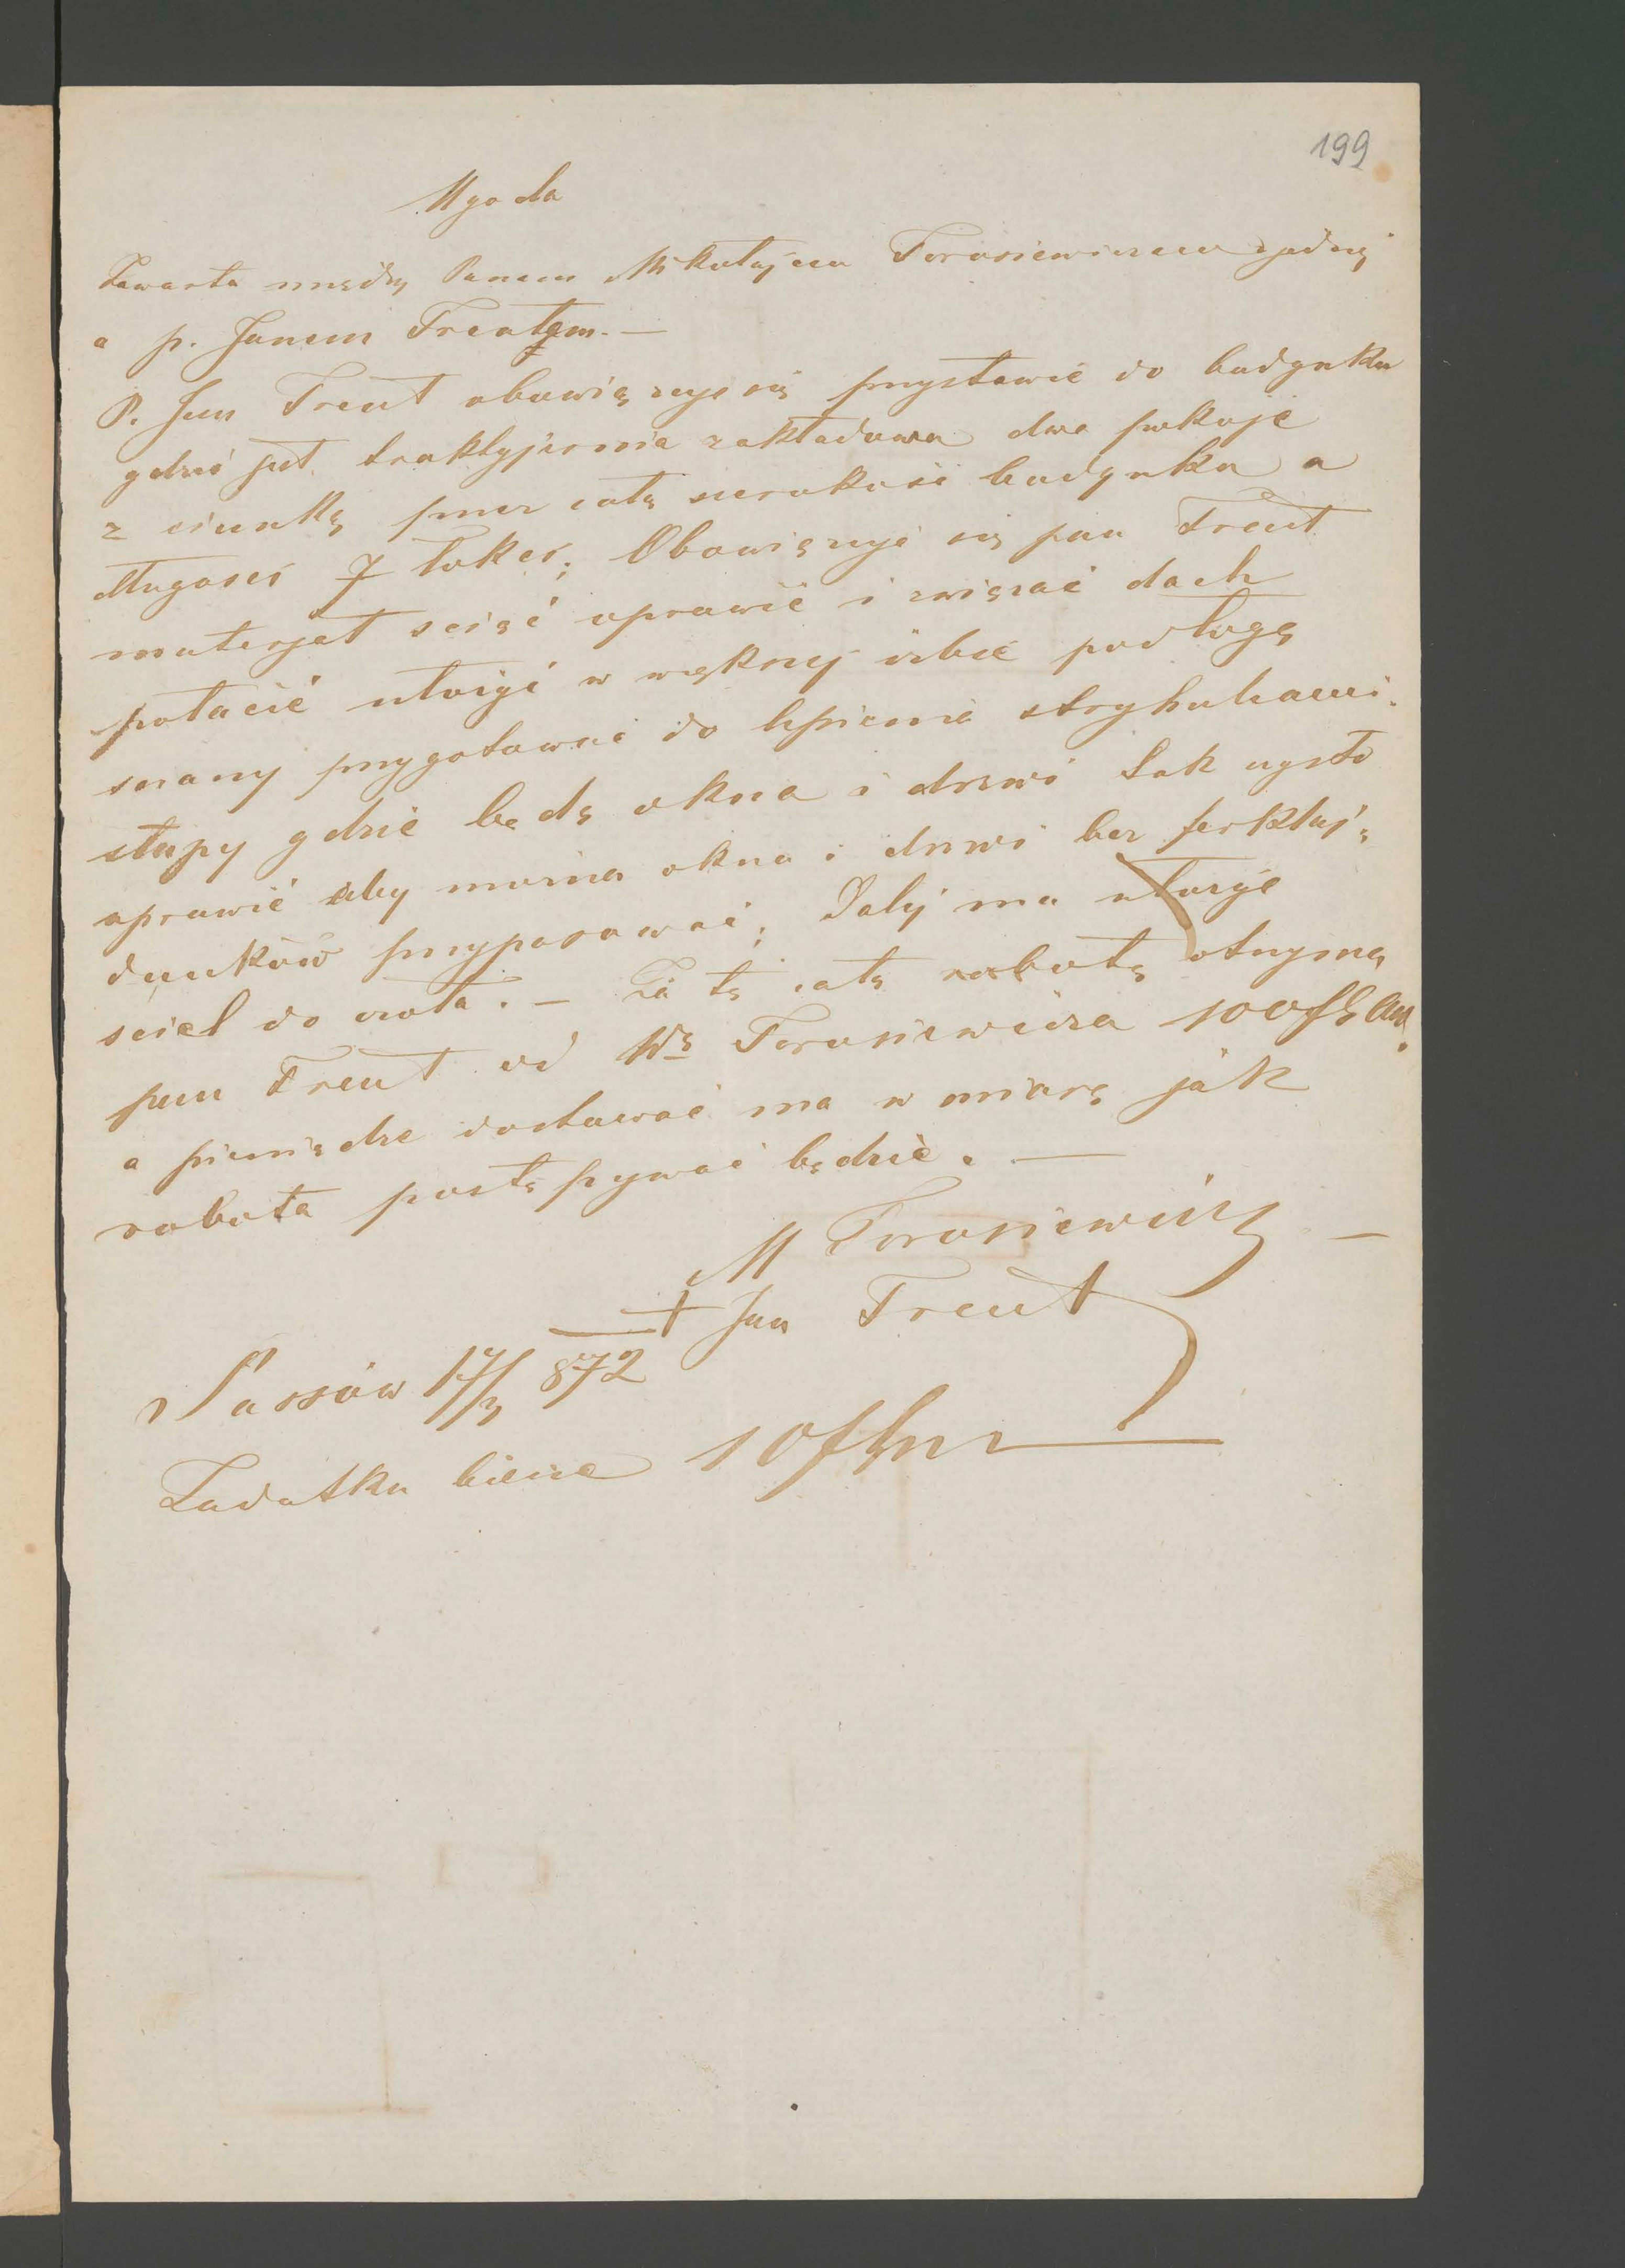 199
Ugoda
Zawarta między Panem Mikołajem Torosiewiczem z jednej
a p. Janem Treutem. —
P. Jan Treut obowięzuje się przystawić do budynku
gdzie jest traktyjernia zakładowa dwa pokoje
z sieniką przez całą szerokość budynku a
długości 7 łokci; Obowięzuje się pan Treut
materjał sciąć oprawić i zwięzać dach
połacić ułożyć w większej izbie podłogę
sciany przygotować do lipienia strychulcami.
słupy gdzie będą okna i drzwi tak czysto
oprawić aby można okna i drzwi bez ferkłaj,
dunków przypasować; Dalej ma ułożyć
sciel do czoła. — Za tę całą robotę otrzyma
pan Treut od Wg Torosiewicza 100 fl aw.
a pieniądze dostawać ma w miarę jak
robota postępywać będzie. —
M Torosiewicz —
+ Jan Treut
Sassów 17/3 872
Zadatku bierze 10 fl